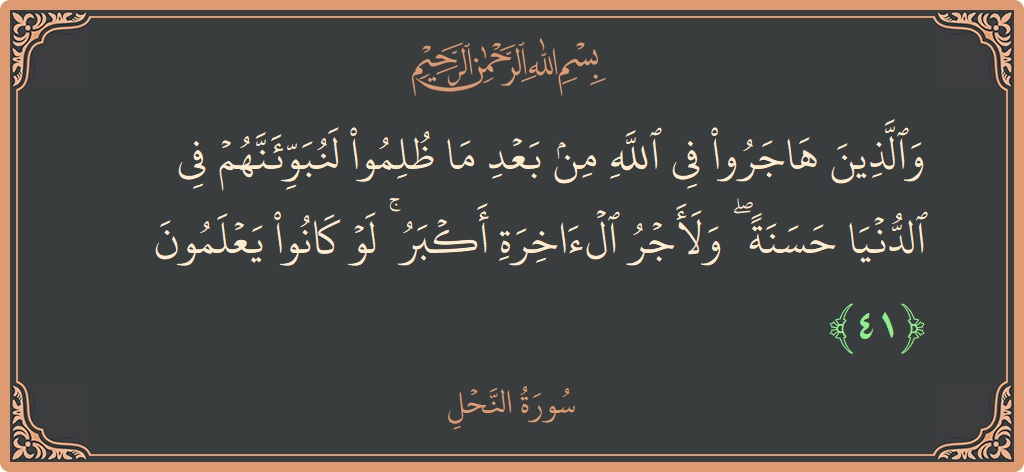 بِسْمِ اللهِ الرَّحْمٰنِ الرَّحِيْمِ
وَٱلَّذِينَ هَاجَرُوا۟ فِى ٱللَّهِ مِنۢ بَعْدِ مَا ظُلِمُوا۟ لَنُبَوِّئَنَّهُمْ فِى
ٱلدُّنْيَا حَسَنَةً ۖ وَلَأَجْرُ ٱلْءَاخِرَةِ أَكْبَرُ ۚ لَوْ كَانُوا۟ يَعْلَمُونَ
﴿٤١﴾
سُورَةُ النَّحْلِ